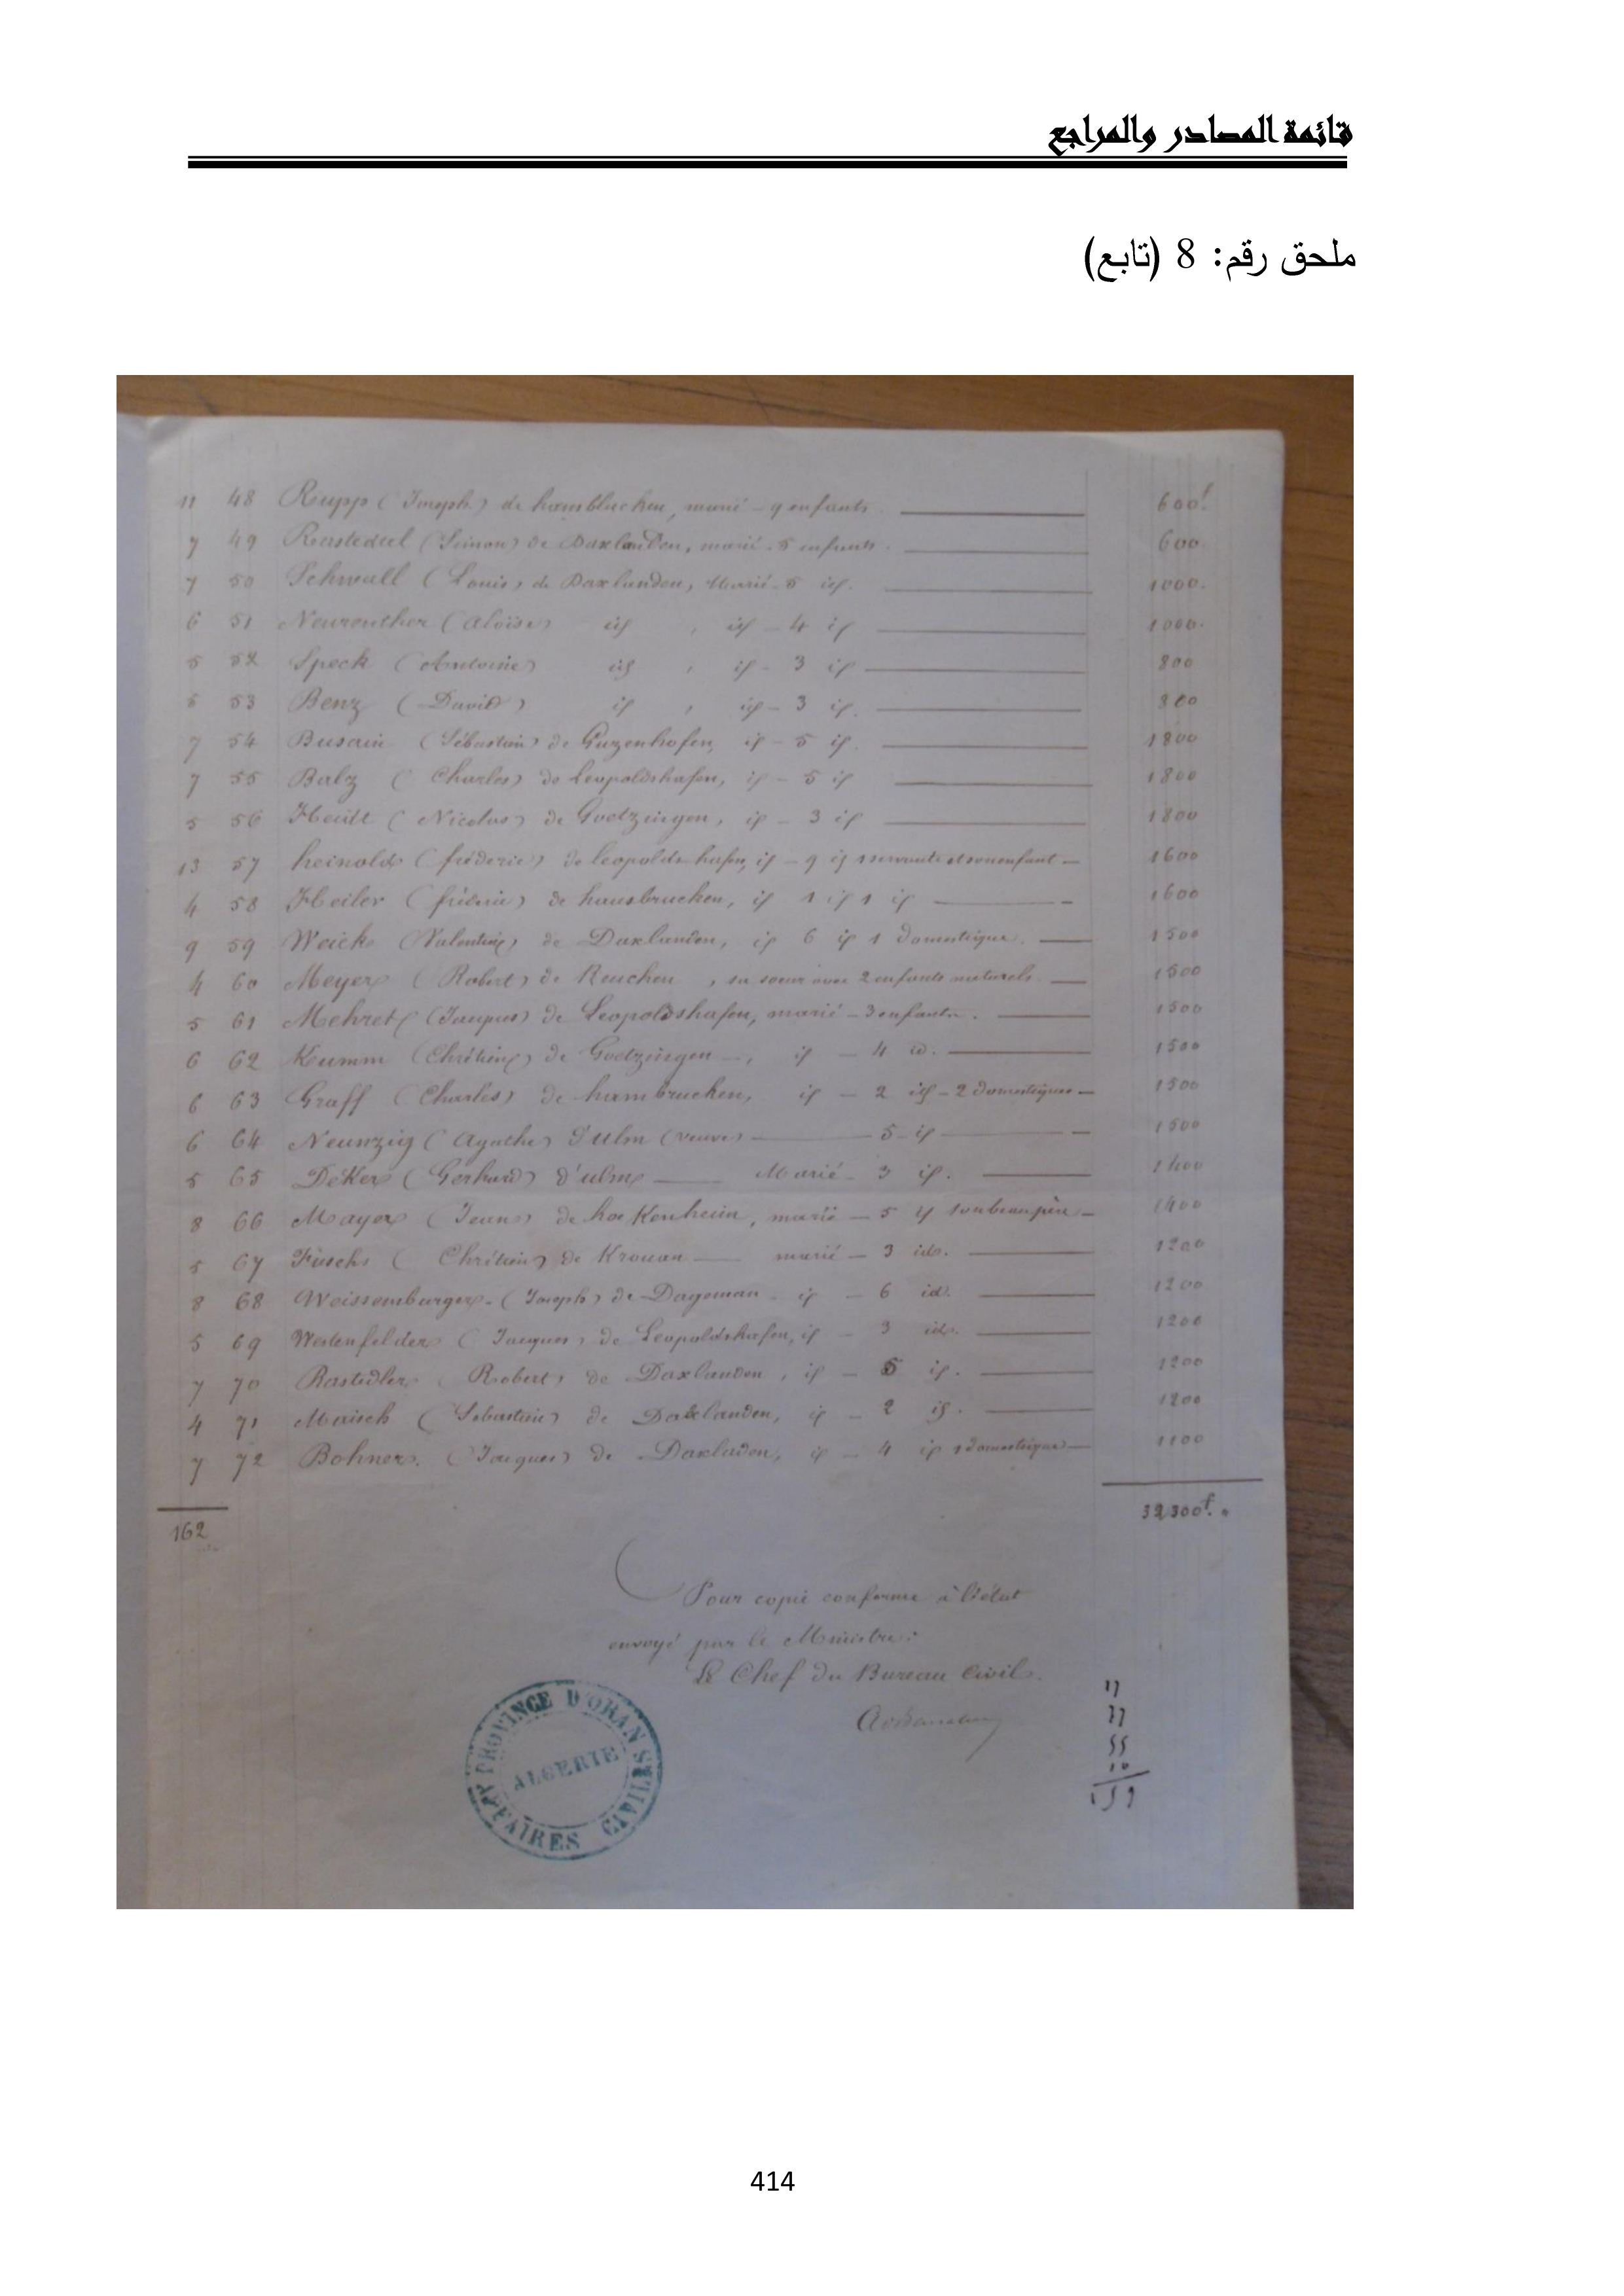 قائمة المصادر والمراجع
ملحق رقم: 8 (تابع)
11 48 Rupp (Joseph) de hambluchen, marié - 9 enfants. 600f.
7 49 Rastedtel (Simon) de Daxlanden, marié - 5 enfants. 600
7 50 Schwall (Louis) de Daxlanden, Marié - 5 id. 1000.
6 51 Neureuther (Aloïse) id , id - 4 id 1000.
5 52 Speck (Antoine) id , id - 3 id 800
5 53 Benz (David) id , id - 3 id. 800
7 54 Busain (Sébastien) de id - 5 id. 1800
7 55 Balz (Charles) de Leopoldshafen, id - 5 id 1800
5 56 (Nicolas) de Goetzingen, id - 3 id 1800
13 57 heinold (fréderic) de leopoldshafen, id - 9 id 1 servante et son enfant - 1600
4 58 Heiler (fréderic) de hausbrucken, id 1 id 1 id 1600
9 59 Weick (Valentin) de Daxlanden, id 6 id 1 domestique. 1500
4 60 Meyer (Robert) de Renchen , sa soeur avec 2 enfants naturels. 1500
5 61 Mehret (Jacques) de Leopoldshafen, marié - 3 enfants. 1500
6 62 Kumm (Chrétien) de Goetzingen , id - 4 id. 1500
6 63 Graff (Charles) de hambrucken, id - 2 id - 2 domestiques - 1500
6 64 Neunzig (Agathe) d'Ulm (veuve) 5 id 1500
5 65 Deker (Gerhard) d'ulm Marié - 3 id. 1400
8 66 Mayer (Jean) de hockenheim, marié - 5 id son beau père - 1400
5 67 Fuschs (Chrétien) de Kronan marié - 3 id. 1200
8 68 Weissemburger. (Joseph) de Dageman id - 6 id. 1200
5 69 Westenfelder (Jacques) de Leopoldshafen, id - 3 id. 1200
7 70 Rastedler (Robert) de Daxlanden , id - 5 id. 1200
4 71 Maisch (Sebastien) de Daxlanden, id - 2 id. 1200
7 72 Bohner. (Jacques) de Daxladen, id - 4 id 1 domestique 1100
162 32300f.
Pour copie conforme à l'état
envoyé par le Ministre:
Le Chef du Bureau Civil.
PROVINCE D'ORAN
ALGERIE
AFFAIRES CIVILES
414